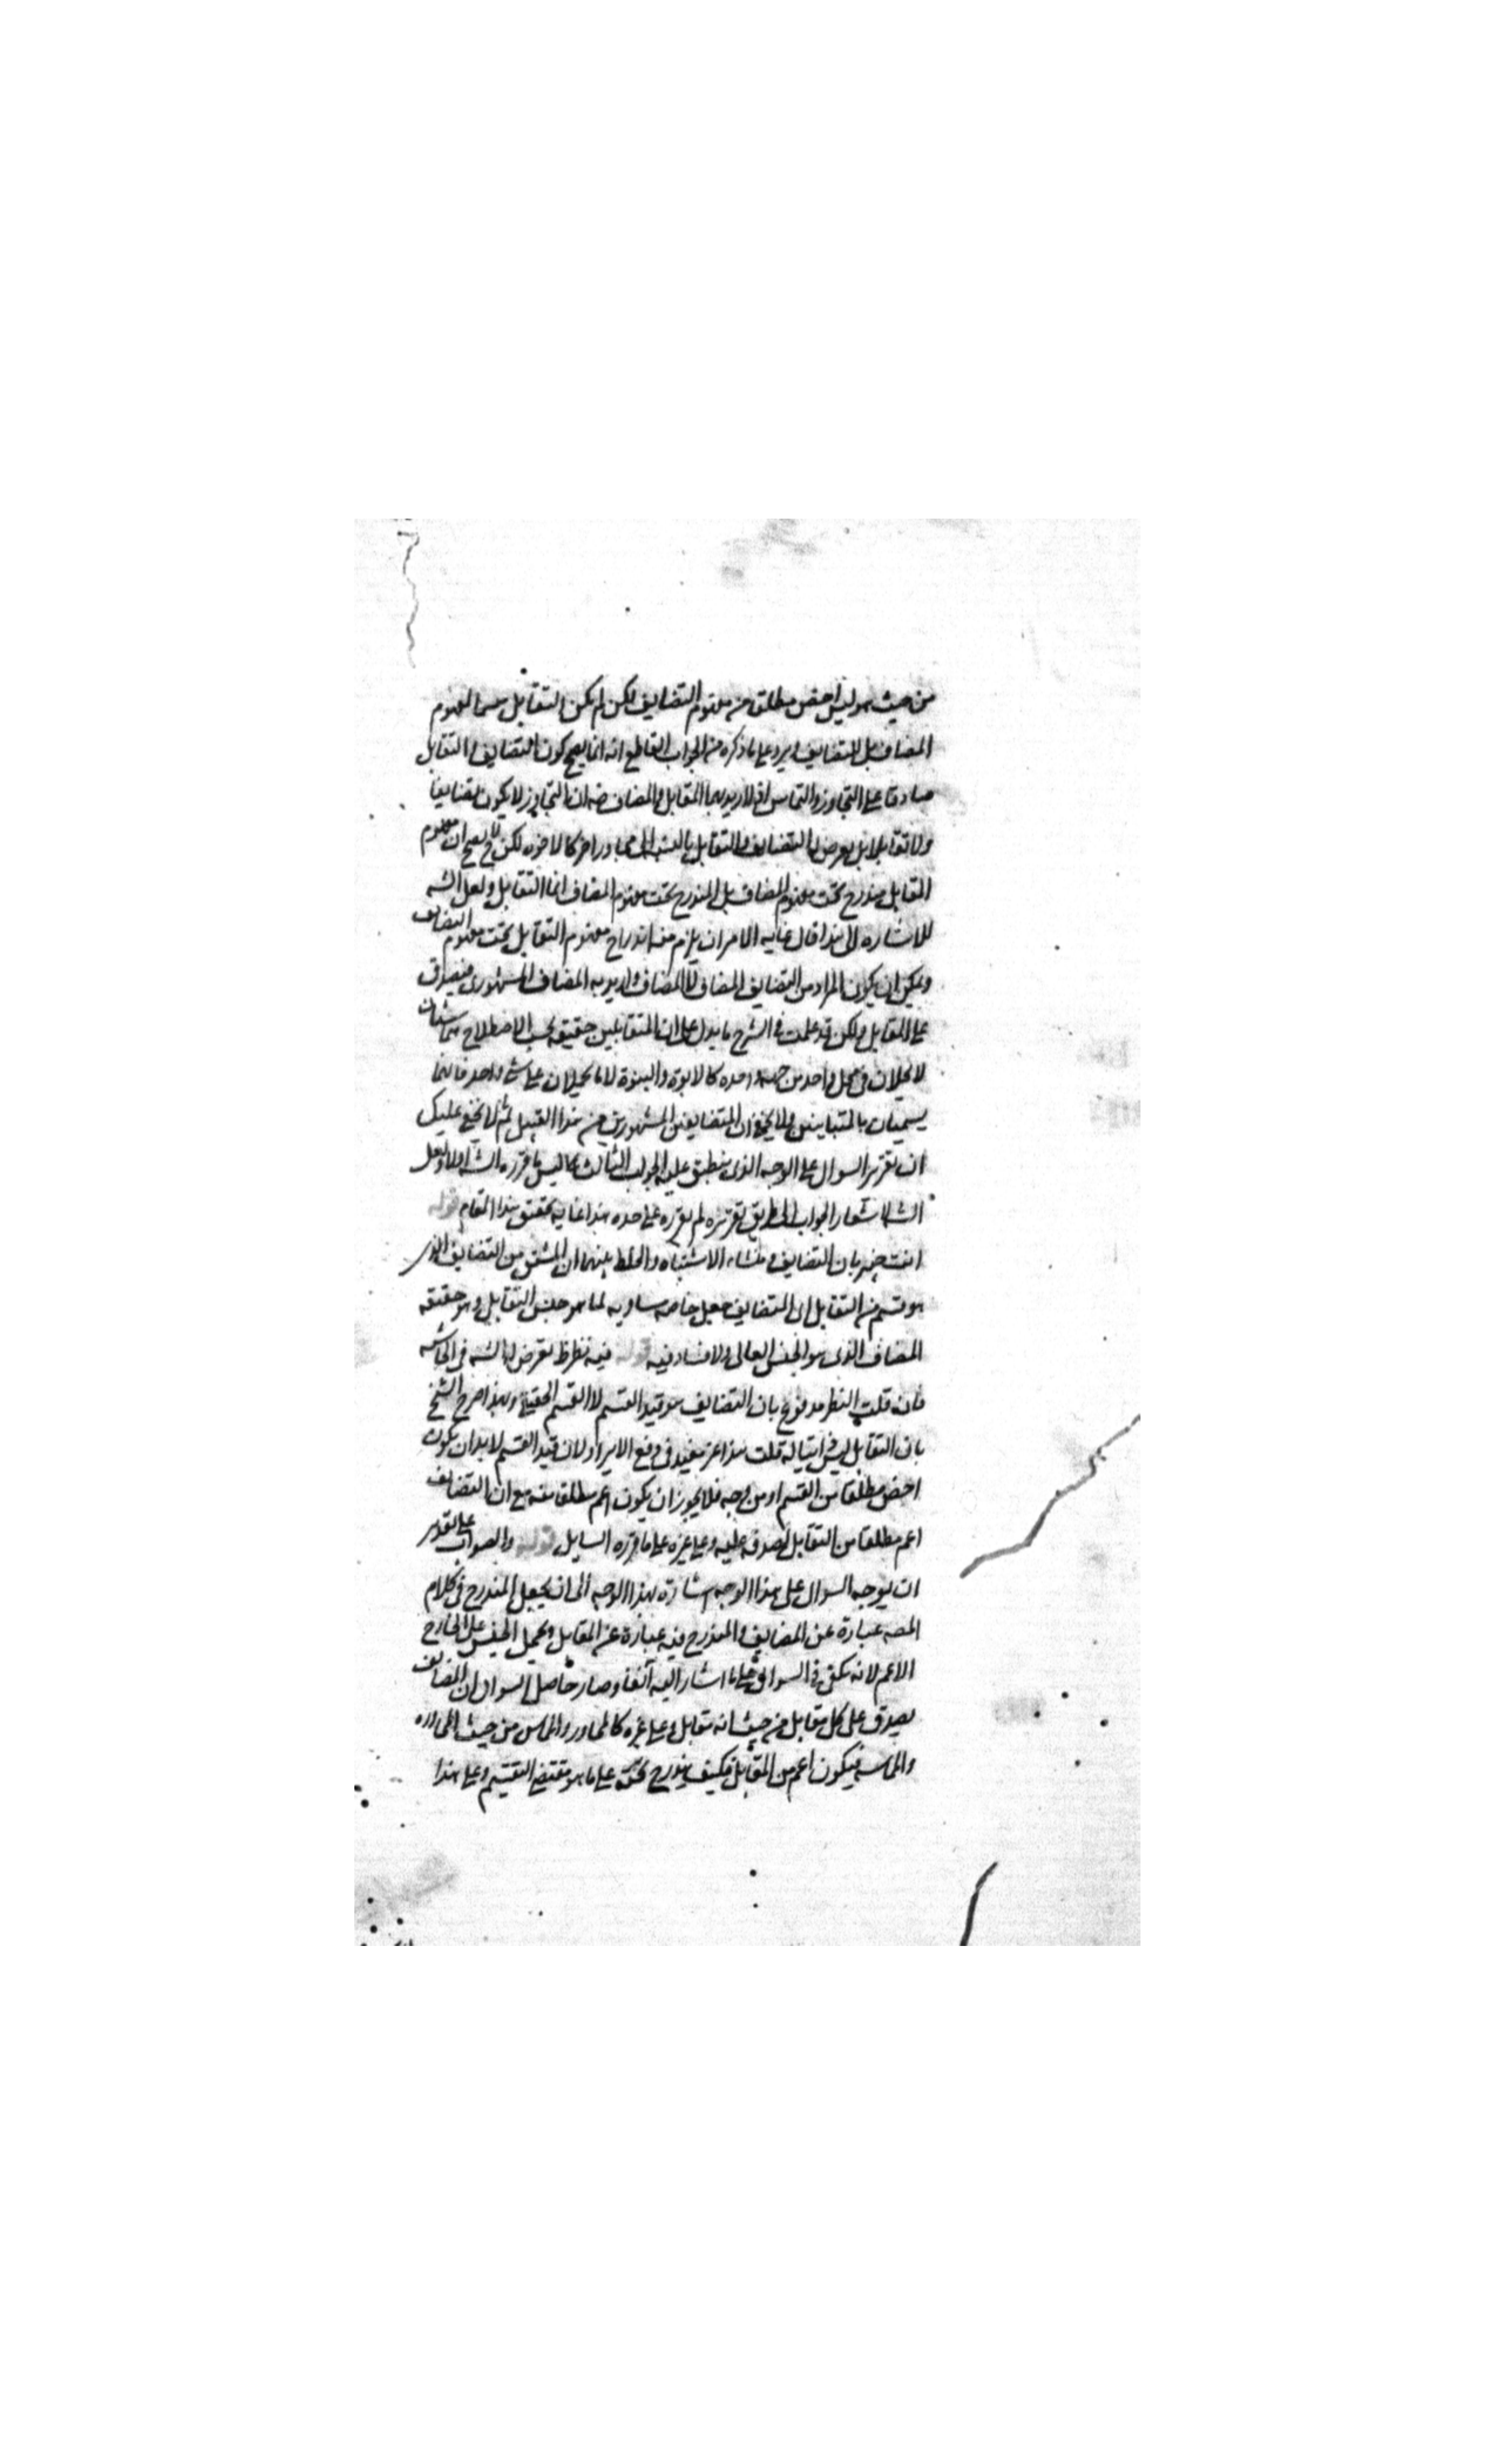 من حيث هو ليس اخص مطلقا من مفهوم التضايف لكن لم يكن التقابل مفهوم
المضاف بل للتضايف ويرد على ما ذكره من الجواب القاطع انه انما يصح كون التضايف والتقابل
صادقا على التجاور والتماس اذ لا اريد بهما المقابل والمضاف ان التجاور لا يكون تضايفا
ولا تقابلا بل يعرض التضايف والتقابل بالنسبة الى مجاور اخر كالاخوة لكن لا يصح ان مفهوم
المقابل مندرج تحت مفهوم المضاف بل المندرج تحت مفهوم المضاف انما التقابل ولعل الشه
للاشاره الى هذا قال غايه الامر ان يلزم منه اندراج مفهوم التقابل تحت مفهوم التضايف
ويمكن ان يكون المراد من التضايف المضاف لا المضاف واريد به المضاف المشهورى فيصدق
على المقابل ولكن قد علمت فى الشرح ما يدل على ان المتقابلين حقيقه بحسب الاصطلاح هما شيئان
لا يحلان فى محل واحد من جهه واحده كالابوة والبنوة لا ما يحملان على شئ واحد فانهما
يسميان بالمتباينين ولا يخفى ان المتضايفين المشهورين من هذا القبيل ثم لا يخفى عليك
ان تقرير السوال على الوجه الذى ينطبق عليه الجواب الثالث ليس ما قرره الشه اولا ولعل
الشه لاشعار الجواب الى طريق تقريره لم يقرره على حده هذا غايه تحقيق هذا المقام قوله
انت خبير بان التضايف منشاء الاشتباه والخلط بينهما ان المشتق من التضايف الذى
هو قسم من التقابل اى المتضايف جعل خاصه مساويه لما هو جنس التقابل وهو حقيقه
المضاف الذى هو الجنس العالى ولا فساد فيه قوله فيه نظر تعرض له الشه فى الحاشيه
فان قلت النظر مدفوع بان التضايف هو قيد القسم لا القسم الحقيقة ولهذا صرح الشيخ
بان التقابل ليس قلت هذا غير مفيد فى دفع الايراد لان قيد القسم لا بد ان يكون
اخص مطلقا من القسم او من وجه فلا يجوز ان يكون اعم مطلقا منه مع ان التضايف
اعم مطلقا من التقابل لصدقه عليه وعلى غيره على ما قرره السايل قوله والصواب على تقدير
ان يوجه السوال على هذا الوجه اشارة بهذا الوجه الى ان يجعل المندرج فى كلام
المصه عبارة عن المضايف والمندرج فيه عبارة عن المقابل ويحمل الجنس على الخارج
الاعم لانه يكفى فى السوال على ما اشار اليه آنفا وصار حاصل السوال ان المضايف
يصدق على كل مقابل من حيث انه مقابل وعلى غيره كالمجاور والماس من حيث المجاوره
والمماسه فيكون اعم من المقابل فكيف يندرج تحته على ما هو مقتضى التقسيم وعلى هذا